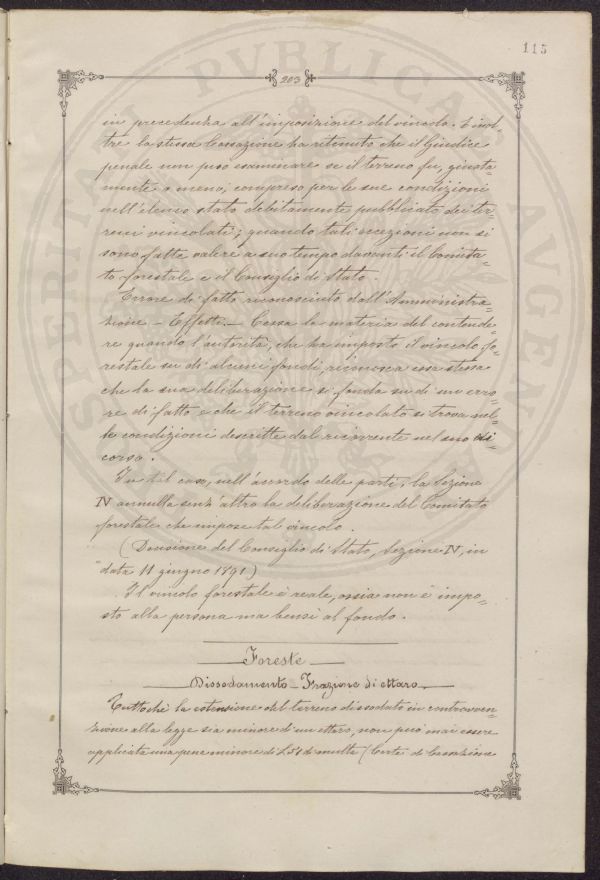 115
203
in precedenza all'imposizione del vincolo. E inol-
tre la stessa Cassazione ha ritenuto che il Giudice
penale non può esaminare se il terreno fu, giusta-
mente o meno, compreso per le sue condizioni
nell'elenco stato debitamente pubblicato dei ter-
reni vincolati; quando tali eccezioni non si
sono fatte valere a suo tempo davanti il Comita-
to forestale e il Consiglio di Stato.
Errore di fatto riconosciuto dall'Amministra-
zione - Effetti - Cessa la materia del contende-
re quando l'autorità, che ha imposto il vincolo fo-
restale su di alcuni fondi, riconosca essa stessa
che la sua deliberazione si fonda su di un erro-
re di fatto e che il terreno vincolato si trova nel-
le condizioni descritte dal ricorrente nel suo ri-
corso.
In tal caso, nell'accordo delle parti, la Sezione
IV annulla senz'altro la deliberazione del Comitato
forestale che impose tal vincolo.
(Decisione del Consiglio di Stato, Sezione IV, in
data 11 giugno 1891)
Il vincolo forestale è reale, ossia non è impo-
sto alla persona ma bensì al fondo.
Foreste
Dissodamento - Frazione di ettaro
Tuttochè la estensione del terreno dissodato in contravven-
zione alla legge sia minore d'un ettaro, non può mai essere
applicata una pena minore di L. 50 di multa (Corte di Cassazione
PERITAT PVBLICA AVGENDA